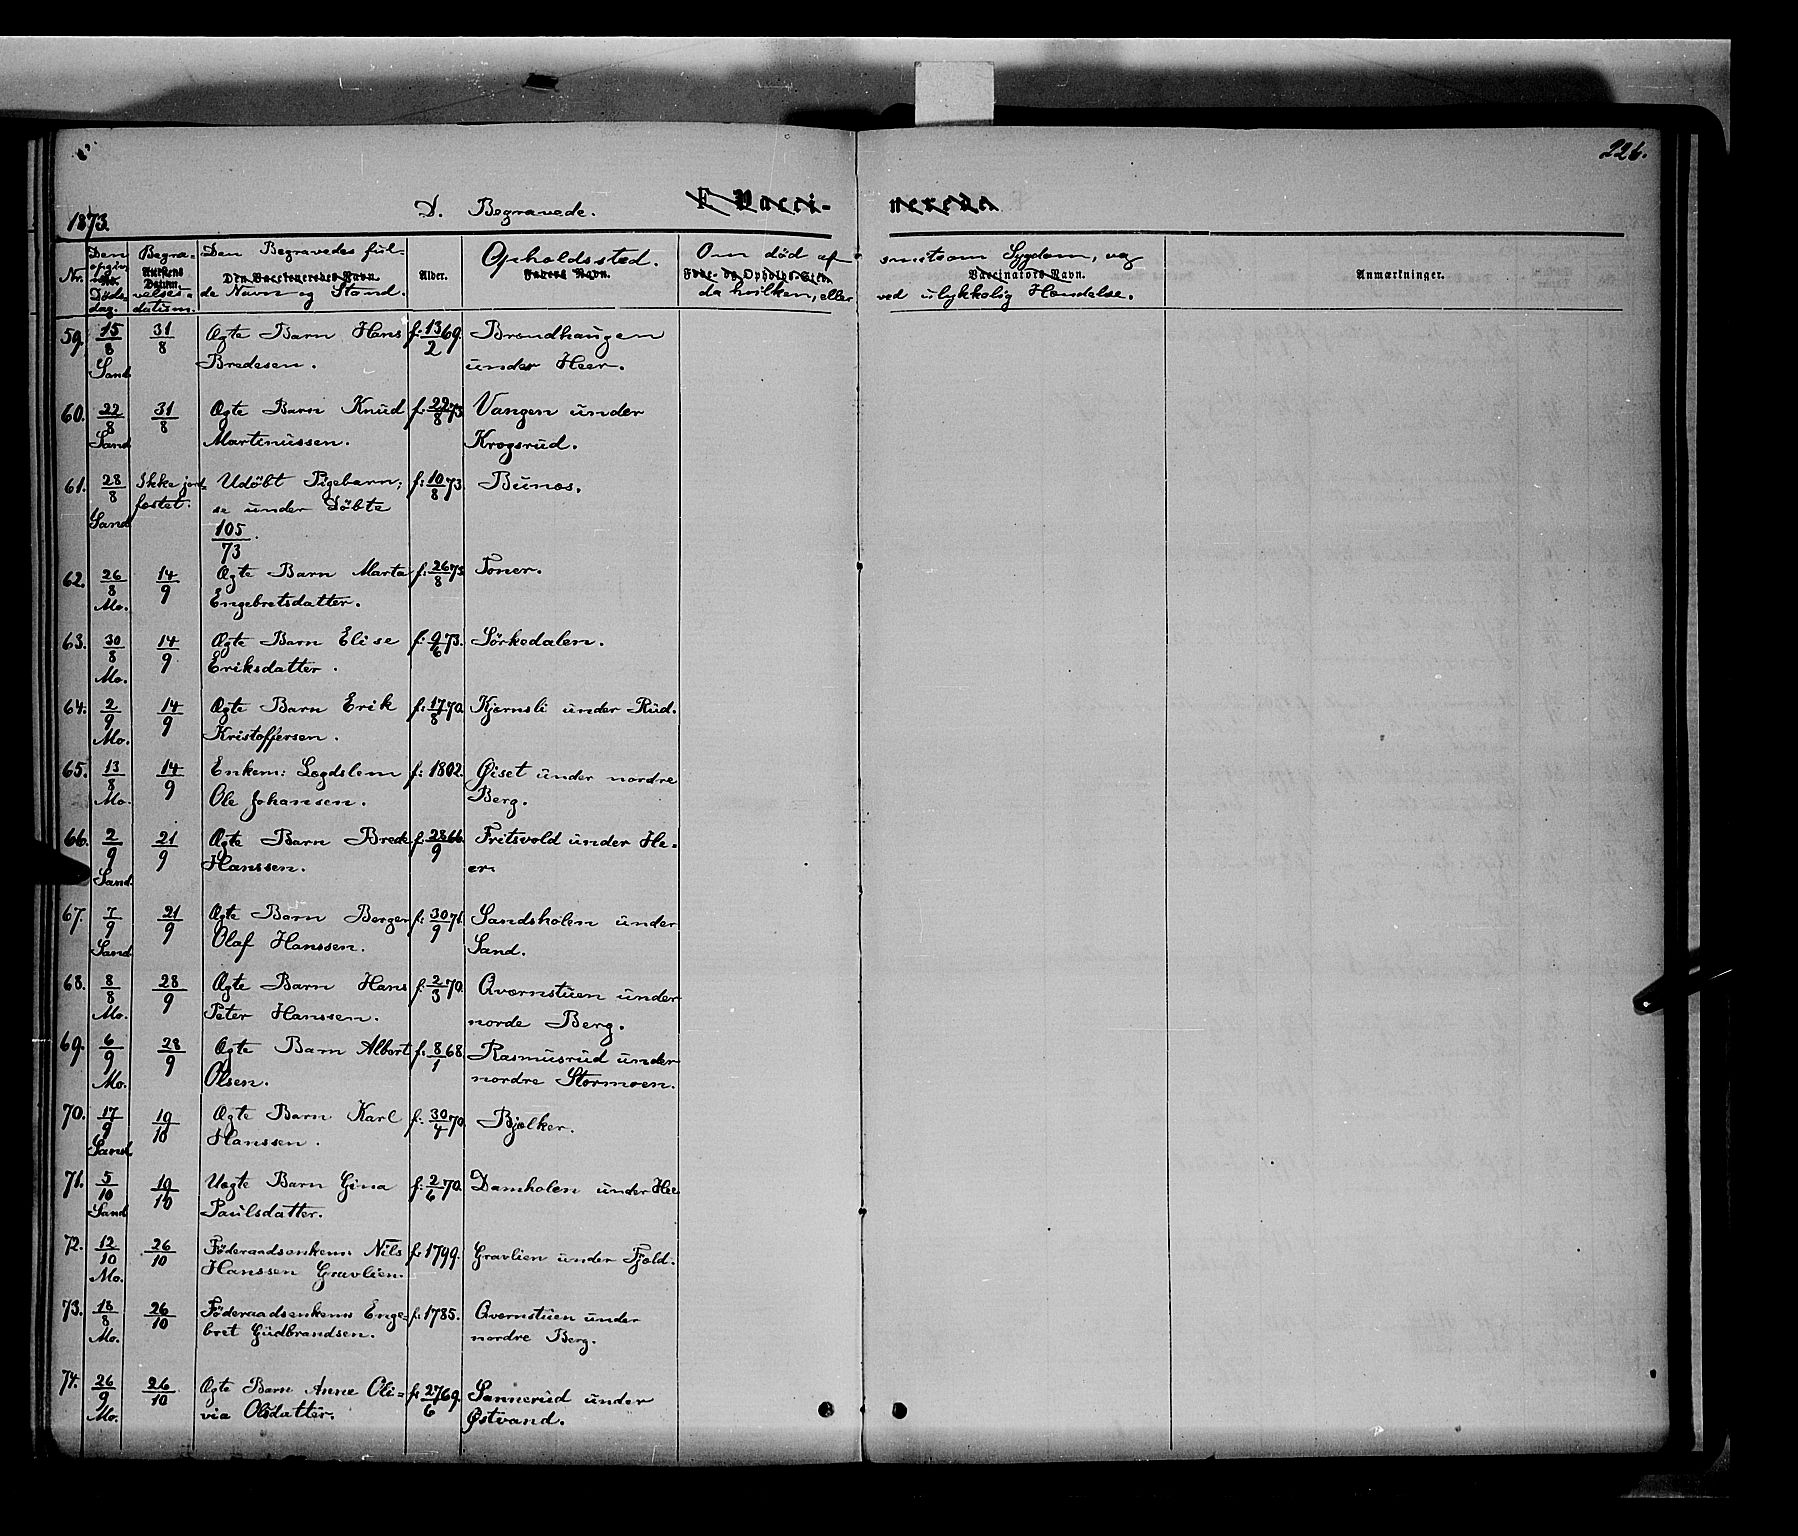 226.
1873.
D. Begravede.
F. Vacci-
nerede
Nr.
Den
Døds-
dag.
Begra-
Attestens
Datum.
velses-
datum.
Den Begravedes ful-
Den Vaccineredes Navn
de Navn og Stand.
Alder.
Opholdssted.
Faders Navn.
Om død af
Føde- og Opholds-Sted
da hvilken, eller
smitsom Sygdom, og
Vaccinators Navn.
ved ulykkelig Hændelse.
Anmærkninger.
59. 15/8 31/8 Ægte Barn Hans f. 13/2 69. Brændhaugen
Sand Bredesen. under Heer.
60. 22/8 31/8 Ægte Barn Knud f. 22/8 73. Vangen under
Sand Martinussen. Krogsrud.
61. 28/8 Ikke jord- Udøbt Pigebarn; f. 10/8 73. Bunæs.
Sand fæstet. se under Døbte
105/73.
62. 26/8 14/9 Ægte Barn Marta f. 26/8 73. Foner.
Mo. Engebretsdatter.
63. 30/8 14/9 Ægte Barn Elise f. 9/6 73. Sørkedalen.
Mo. Eriksdatter.
64. 2/9 14/9 Ægte Barn Erik f. 17/8 70. Kjernsli under Rud.
Mo. Kristoffersen.
65. 13/8 14/9 Enkem: Lægdslem f. 1802. Øiset under nordre
Mo. Ole Johansen. Berg.
66. 2/9 21/9 Ægte Barn Brede f. 28/9 66. Fritsvold under He-
Sand. Hanssen. er.
67. 7/9 21/9 Ægte Barn Berger f. 30/9 71. Sandsholen under
Sand Olaf Hanssen. Sand.
68. 8/8 28/9 Ægte Barn Hans f. 2/3 70. Qværnstuen under
Mo. Peter Hanssen. norde Berg.
69. 6/9 28/9 Ægte Barn Albert f. 8/1 68. Rasmusrud under
Mo. Olsen. nordre Stormoen.
70. 17/9 19/10 Ægte Barn Karl f. 30/4 70. Bjølker.
Sand Hanssen.
71. 5/10 19/10 Uægte Barn Gina f. 2/6 70. Damholen under Hee
Sand Paulsdatter.
72. 12/10 26/10 Føderaadsenkem. Nils f. 1799. Gravlien under Fjeld.
Mo. Hanssen Gravlien.
73. 18/8 26/10 Føderaadsenkem Enge- f. 1785. Qværnstuen under
Mo. bret Gudbrandsen. nordre Berg.
74. 26/9 26/10 Ægte Barn Anne Oli- f. 27/6 69. Sannerud under
Mo. via Olsdatter. Østvand.